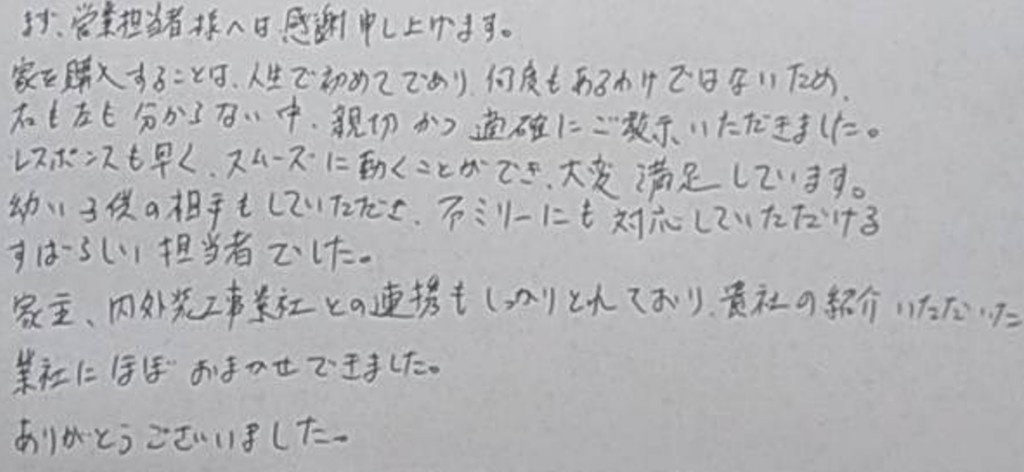 まず、営業担当者様へは感謝申し上げます。
家を購入することは、人生で初めてであり、何度もあるわけではないため、
右も左も分からない中、親切かつ適確にご教示いただきました。
レスポンスも早く、スムーズに動くことができ、大変満足しています。
幼い子供の相手もしていただき、ファミリーにも対応していただける
すばらしい担当者でした。
家主、内外装工事業社との連携もしっかりとれており、貴社の紹介いただいた
業社にほぼおまかせできました。
ありがとうございました。